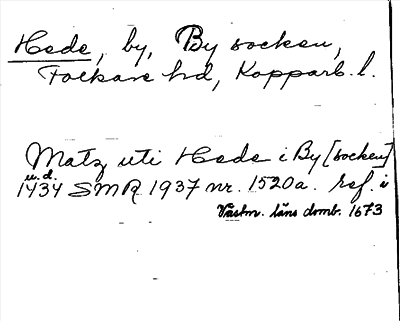 Hede, by, By socken,
Folkare hd, Kopparb. l.
Matz uti Hede i By [socken]
u.d.
1434 SMR 1937 nr. 1520a. ref. i
Västm. läns domb. 1673